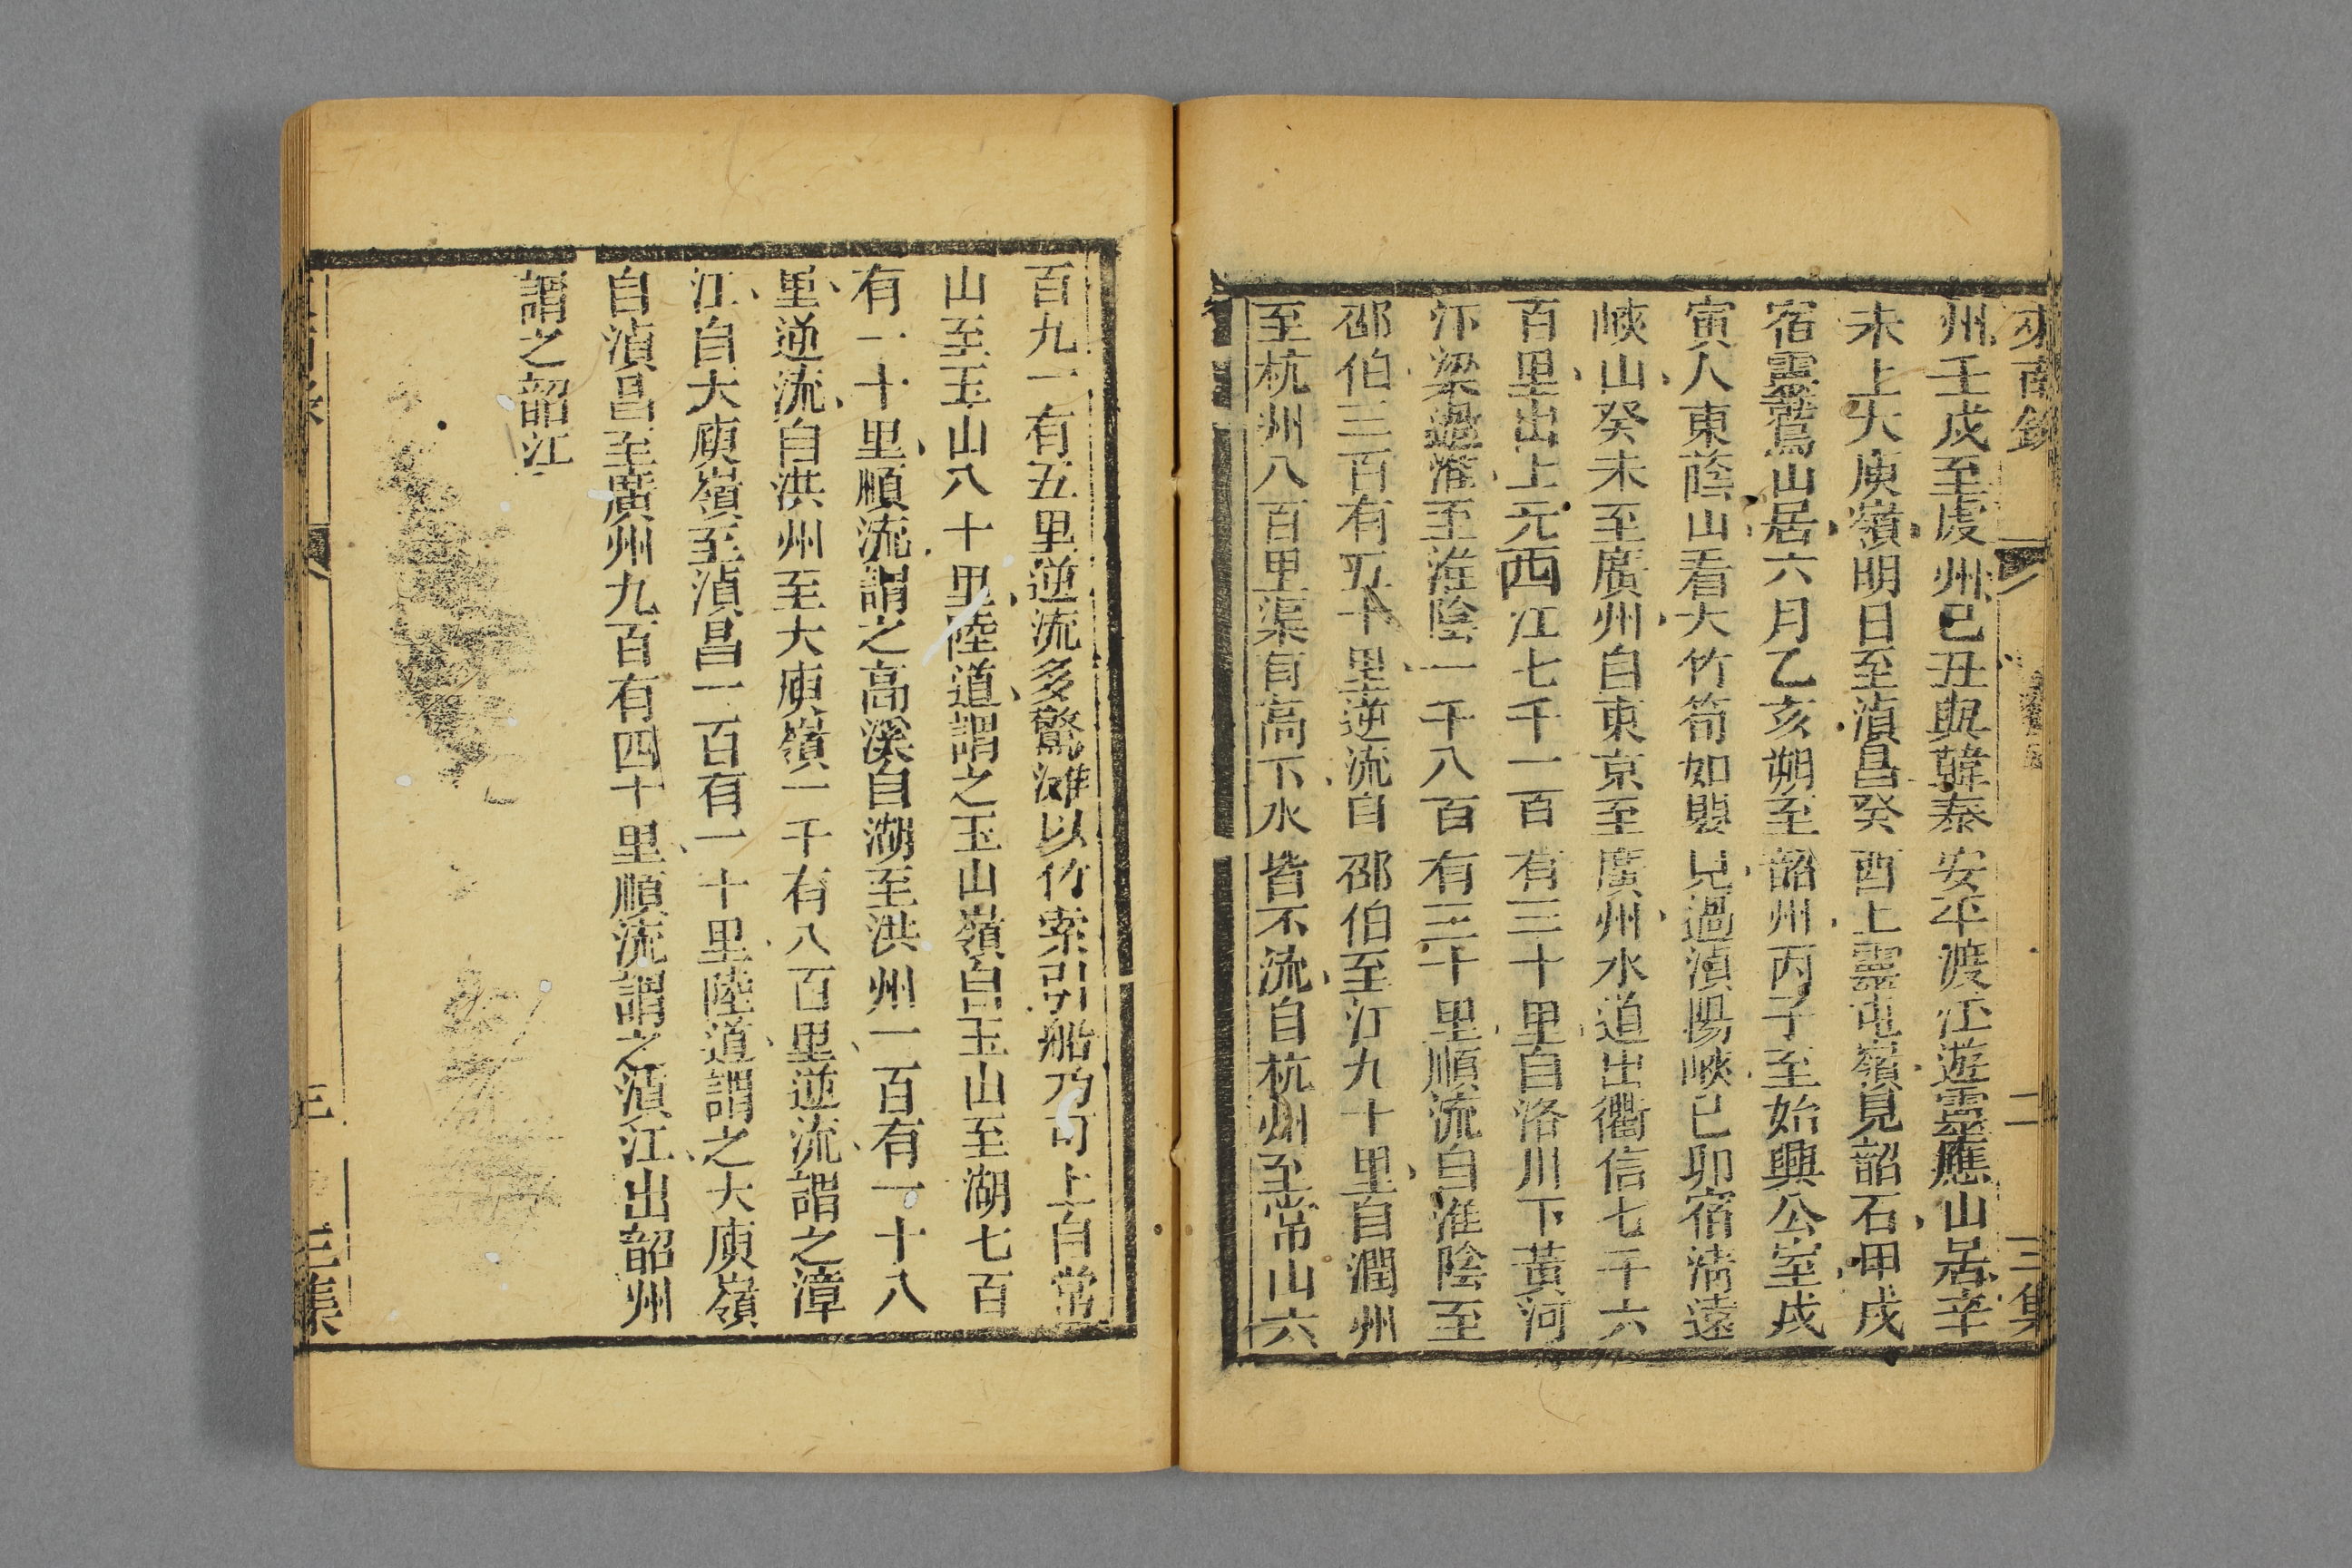 來南錄 二 三集
州壬戌至虔州己丑與韓泰安平渡江遊靈應山居辛
未上大庾嶺明日至湞昌癸酉上靈屯嶺見韶石甲戌
宿靈鷲山居六月乙亥朔至韶州丙子至始興公室戌
寅人東蔭山看大竹筍如嬰兒過湞陽峽己卯宿清遠
峽山癸未至廣州自東京至廣州水道出衢信七千六
百里出上元西江七千一百有三十里自洛川下黃河
汴梁過淮至淮陰一千八百有三十里順流自淮陰至
邵伯三百有五十里逆流自邵伯至江九十里自潤州
至杭州八百里渠有高下水皆不流自杭州至常山六
百九一有五里逆流多驚灘以竹索引船乃可上自常
山至玉山八十里陸道謂之玉山嶺自玉山至湖七百
有一十里順流謂之高溪自湖至洪州一百有一十八
里逆流自洪州至大庾嶺一千有八百里逆流謂之漳
江自大庾嶺至湞昌一百有一十里陸道謂之大庾嶺
自湞昌至廣州九百有四十里順流謂之湞江出韶州
謂之韶江
三 三集